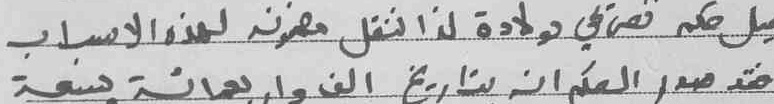 حكم نصرفي دولادة لذا ننقل مضمونه لهذه الاسباب
فقد صدر الحكم انه بتاريخ الف واربعمائة وسبعة